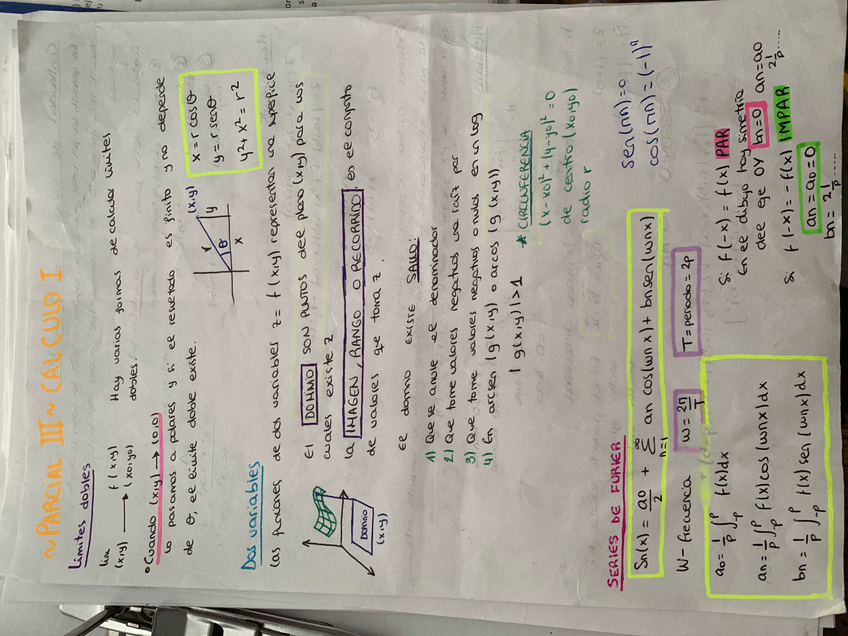 ~PARCIAL III ~ CALCULO I
Límites dobles
lim f(x,y) Hay varias formas de calcular límites
(x,y) → (x0,y0) dobles.
• Cuando (x,y) → (0,0)
lo pasamos a polares y si el resultado es finito y no depende
de θ, el límite doble existe.
(x,y)
r
y
θ
x
x = r cosθ
y = r senθ
y²+x² = r²
Dos variables
Las funciones de dos variables z = f(x,y) representan una superficie
El DOMINIO SON PUNTOS del plano (x,y) para los
cuales existe z
La IMAGEN, RANGO O RECORRIDO, es el conjunto
de valores que toma z.
DOMINIO
(x,y)
El dominio existe SALVO:
1) Que se anule el denominador
2) Que tome valores negativos una raíz par
3) Que tome valores negativos o nulos en un log
4) En arcsen |g(x,y) o arcos |g(x,y))
|g(x,y)|>1
* CIRCUNFERENCIA
(x-x0)²+(y-y0)²=0
de centro (x0,y0)
radio r
SERIES DE FURIER
Sn(x) = a0/2 + ∑ n=1 ∞ an cos(wnx) + bn sen(wnx)
sen(πn)=0
cos(πn)=(-1)ⁿ
W- frecuencia
w = 2π/T
T = periodo = 2p
a0 = 1/p ∫-p p f(x)dx
an = 1/p ∫-p p f(x)cos(wnx)dx
bn = 1/p ∫-p p f(x) sen(wnx)dx
Si f(-x) = f(x) PAR
En el dibujo hay simetría
del eje OY bn=0 an=a0
2 1/p .....
Si f(-x) = -f(x) IMPAR
an = a0 = 0
bn = 2 1/p .....